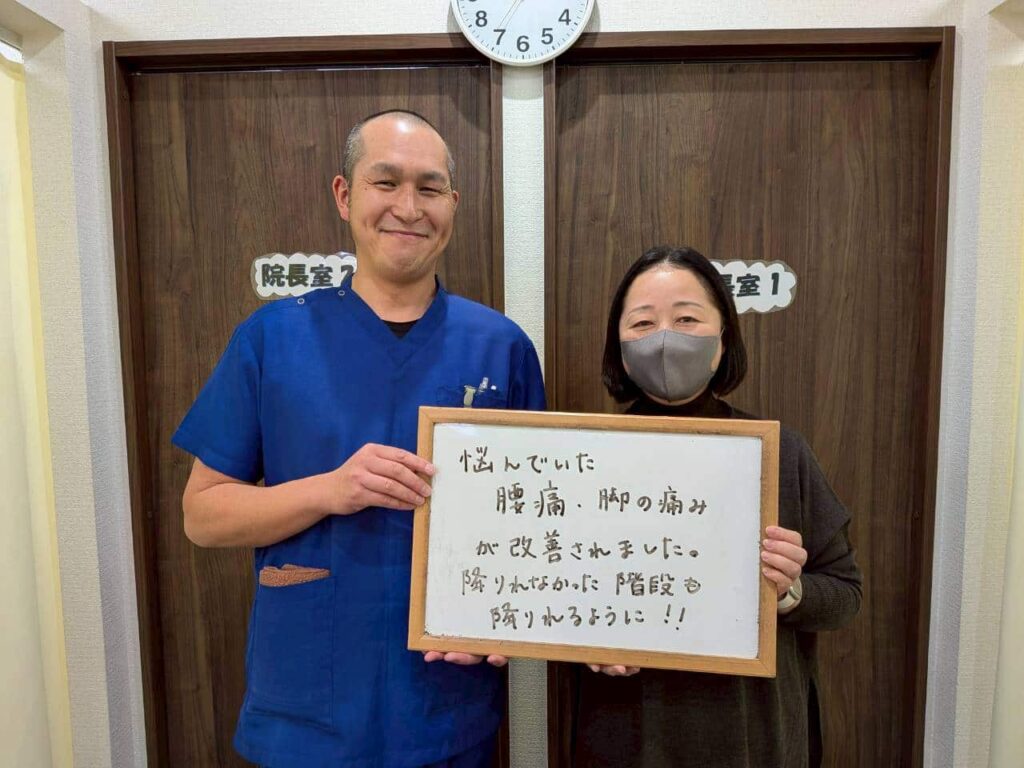 8 7 6 5 4
院長室2
室1
悩んでいた
腰痛・脚の痛み
が改善されました。
降りれなかった階段も
降りれるように!!